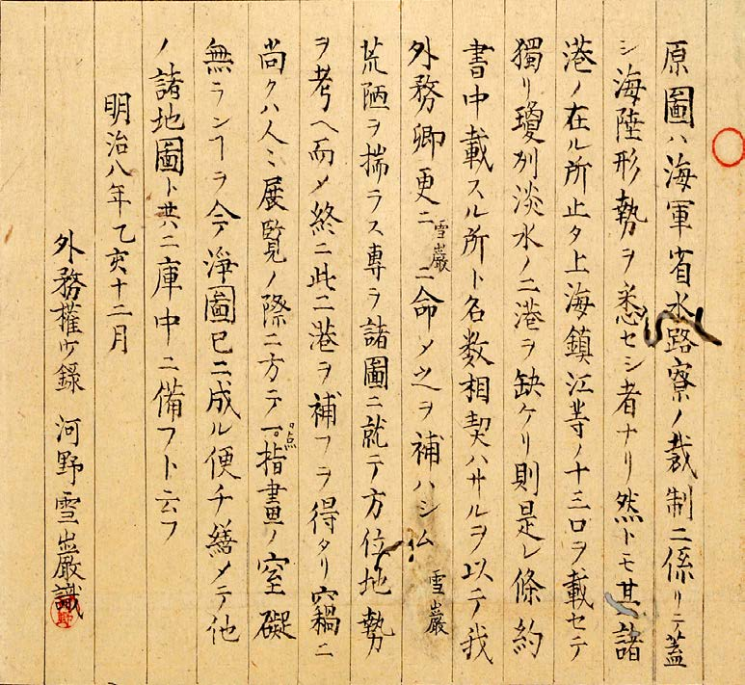 原圖ハ海軍省水路寮ノ裁制ニ係リテ蓋
シ海陸形勢ヲ悉セシ者ナリ然トモ其諸
港ノ在ル所止タ上海鎮江等ノ十三口ヲ載セテ
獨リ瓊州淡水ノ二港ヲ缺ケリ則是レ條約
書中載スル所ト名数相契ハサルヲ以テ我
外務卿更ニ雪巖ニ命メ之ヲ補ハシム雪巖
荒陋ヲ揣ラス専ラ諸圖ニ就テ方位地勢
ヲ考ヘ而メ終ニ此二港ヲ補フヲ得タリ窃ニ
尚クハ人ミ展覧ノ際ニ方テ一点指畫ノ窒礙
無ランヿヲ今浄圖已ニ成ル便チ繕メテ他
ノ諸地圖ト共ニ庫中ニ備フト云フ
明治八年乙亥十二月
外務權少録 河野雪巖識